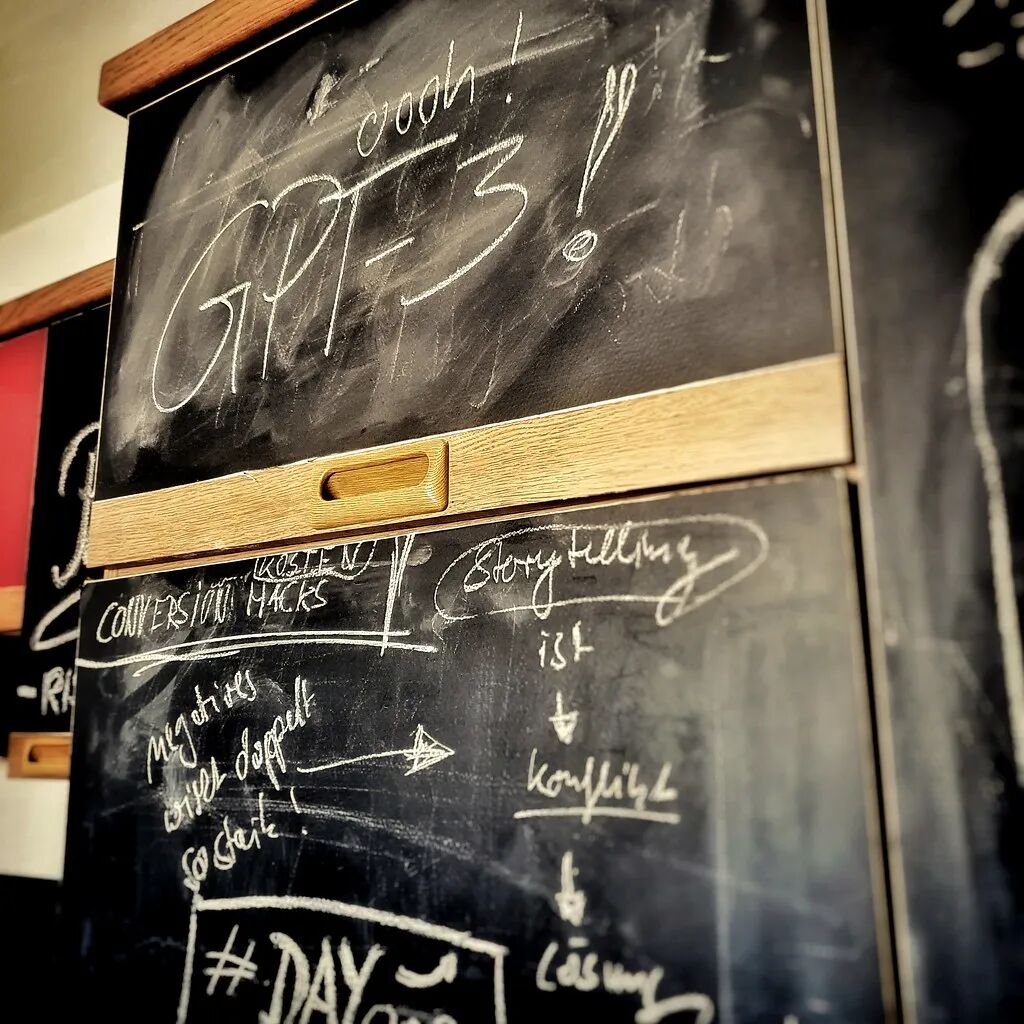 oooh!
GPT-3!
(KOSTEN)
CONVERSION HACKS
negatives
wirkt doppelt
so stark!
Storytelling
ist
↓
Konflikt
↓
Lösung
#DAY